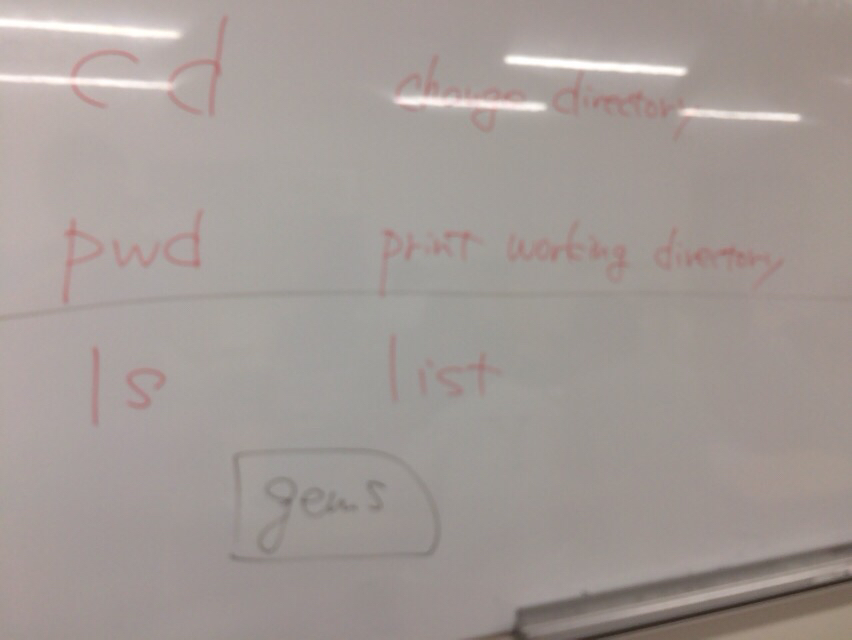 cd change directory
pwd print working directory
ls list
gems